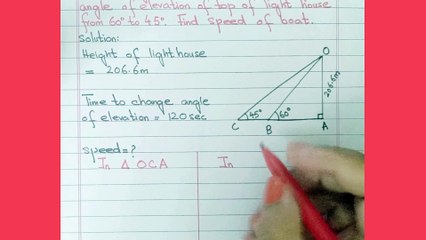 angle of elevation of top of light house
from 60° to 45°. Find speed of boat.
Solution:
Height of lighthouse
= 206.6m
Time to change angle
of elevation = 120sec
speed=?
In Δ OCA
In
O
206.6m
45°
60°
C
B
A